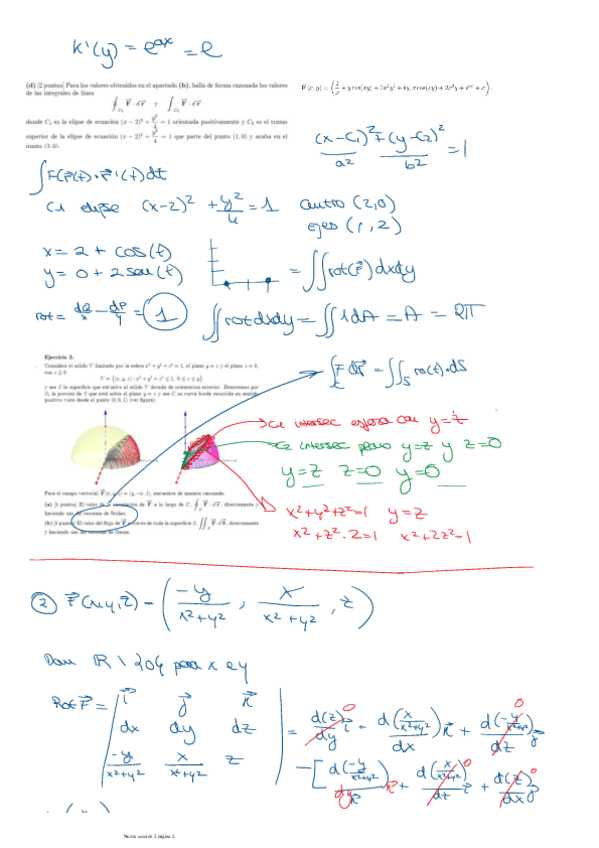 K'(y) = e^{ax} = e
(d) [2 puntos] Para los valores obtenidos en el apartado (b), halla de forma razonada los valores
de las integrales de línea
∮_{C₁} F⃗ · dr⃗ y ∫_{C₂} F⃗ · dr⃗
donde C₁ es la elipse de ecuación (x − 2)² + y²/4 = 1 orientada positivamente y C₂ es el tramo
superior de la elipse de ecuación (x − 2)² + y²/4 = 1 que parte del punto (1, 0) y acaba en el
punto (3, 0).
(x-C₁)²/a² + (y-C₂)²/b² = 1
∫F(r⃗(t)·r⃗'(t)dt
C1 elipse (x-2)² + y²/4 = 1 centro (2,0)
ejes (1,2)
x = 2 + cos(t)
y = 0 + 2sen(t)
= ∬rot(F⃗)dxdy
rot = dQ/x - dP/y = 1
∬rotdxdy = ∬1dA = A = 2π
Ejercicio 2.
Considera el sólido V limitado por la esfera x² + y² + z² = 1, el plano y = z y el plano z = 0,
con z ≥ 0
V = {(x, y, z) : x² + y² + z² ≤ 1, 0 ≤ z ≤ y}
y sea S la superficie que envuelve el sólido V dotada de orientación exterior. Denotemos por
S₁ la porción de S que está sobre el plano y = z y sea C su curva borde recorrida en sentido
positivo vista desde el punto (0, 0, 1) (ver figura).
∫_C F⃗ dr⃗ = ∬_S rot()·dS
C1 intersec esfera con y=z
C2 intersec plano y=z y z=0
y=z z=0 y=0
Para el campo vectorial F⃗(x, y, z) = (y, −x, 1), encuentra de manera razonada:
(a) [5 puntos] El valor de la circulación de F⃗ a lo largo de C, ∮_C F⃗ · dr⃗, directamente y
haciendo uso del teorema de Stokes.
(b) [5 puntos] El valor del flujo de F⃗ a través de toda la superficie S, ∬_S F⃗ · dS⃗, directamente
y haciendo uso del teorema de Gauss.
x²+y²+z²=1 y=z
x²+z²·2=1 x²+2z²=1
② F⃗(x,y,z) = (-y/(x²+y²), x/(x²+y²), z)
Dom ℝ\{0} para x e y
Rot F⃗ = | i⃗ j⃗ k⃗
dx dy dz
-y/(x²+y²) x/(x²+y²) z | = d(z)/dy i⃗ + d(x/(x²+y²))/dx k⃗ + d(-y/(x²+y²))/dz j⃗
-[d(-y/(x²+y²))/dy k⃗ + d(x/(x²+y²))/dz i⃗ + d(z)/dx j⃗
Nueva sección 1 página 2